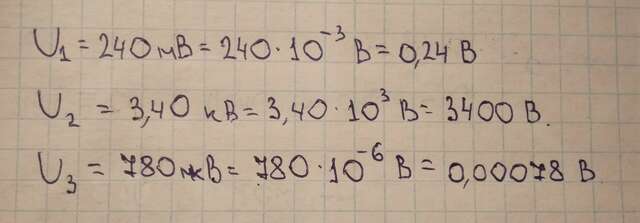 U₁ = 240 мВ = 240 · 10⁻³ В = 0,24 В
U₂ = 3,40 кВ = 3,40 · 10³ В = 3400 В.
U₃ = 780 мкВ = 780 · 10⁻⁶ В = 0,00078 В